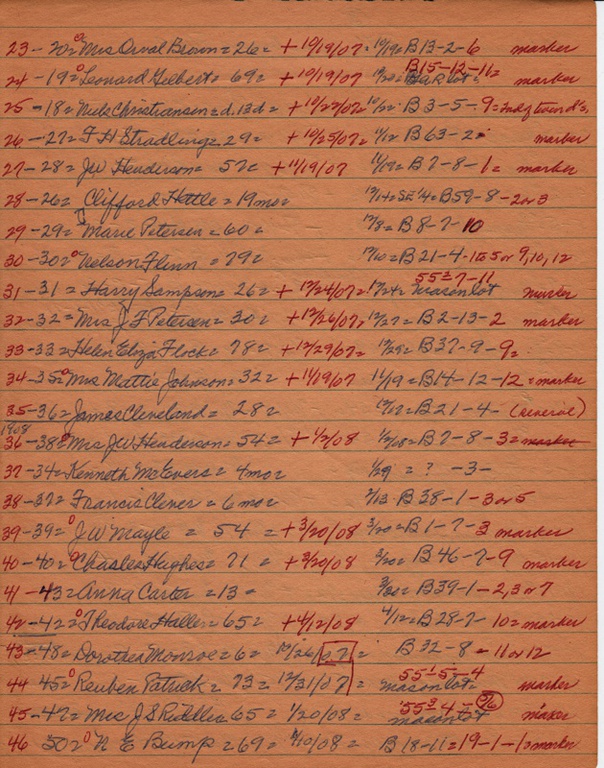 23-20=⁰Mrs Orval Brown=26= +10/19/07=10/19= B13-2-6 marker
24-19=⁰Leonard Gilbert=69= +10/19/07=10/20= B15-12-11= marker
25-18=Niels Christiansen=d.13d=+10/22/07=10/22= B3-5-9=
26-27=F H Stradling=29= +10/25/07= B63-2= marker
27-28=JW Henderson=57= +11/19/07 11/19=B7-8-1= marker
28-26= Clifford Hettle=19mo= B59-8-2 or 3
29-29= Marie Petersen=60= 12/8=B8-7-10
30-30=⁰Nelson Flinn=79= 12/10=B21-4- 5 or 9,10,12
31-31= Harry Sampson=26=+12/24/07=12/24= 55=7-11 mason lot marker
32-32=Mrs J F Petersen=30= +12/26/07=12/27=B2-13-2 marker
33-33=Helen Eliza Flock=78=+12/29/07= 12/29=B37-9-9=
34-35=⁰Mrs Mattie Johnson=32=+11/19/07 11/19=B14-12-12=marker
35-36=James Cleveland= 28= 12/17=B21-4-
1908
36-38=⁰Mrs JW Henderson=54=+1/2/08 1/2/08=B7-8-3=marker
37-34=Kenneth McEvers=4mo= 1/29=?-3-
38-37=Francis Clever=6mo= 2/13=B38-1-3 or 5
39-39=⁰JW Mayle= 54 =+3/20/08 3/20=B1-7-3 marker
40-40=⁰Chasles Hughes=71 =+3/20/08 3/20= B46-7-9 marker
41-43=Anna Carter=13= B39-1-2,3 or 7
42-42=⁰Theodore Haller=65= +4/12/08 4/12=B28-7-10=marker
43-48=Dorothea Monroe=6= 10/26/07= B32-8-11 or 12
44 45=⁰Reuben Patrick=73=12/31/07 55=5-4 mason lot= marker
45-47=Mrs J S 65=1/20/08= 55=4- mason lot marker
46 50=⁰N E Bump=69= /10/08= B18-11=19-1-1=marker